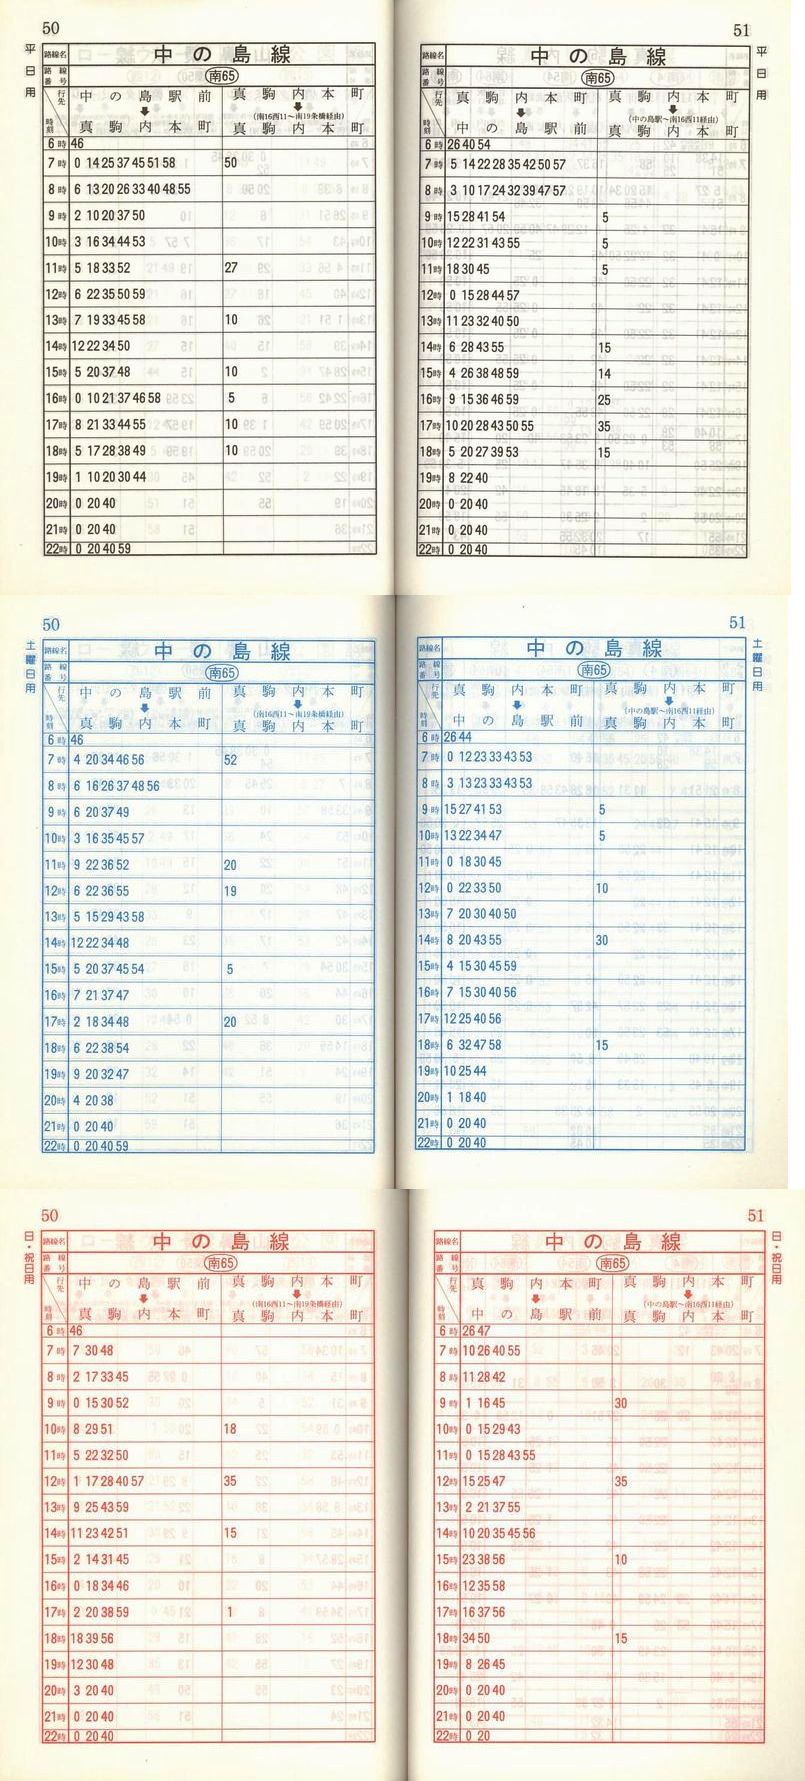 50
平日用
路線名 中の島線
路線番号 南65
行先 時刻 中の島駅前 ⬇ 真駒内本町 真駒内本町 ⬇ (南16西11〜南19条橋経由) 真駒内本町
6時 46
7時 0 14 25 37 45 51 58 50
8時 6 13 20 26 33 40 48 55
9時 2 10 20 37 50
10時 3 16 34 44 53
11時 5 18 33 52 27
12時 6 22 35 50 59
13時 7 19 33 45 58 10
14時 12 22 34 50
15時 5 20 37 48 10
16時 0 10 21 37 46 58 5
17時 8 21 33 44 55 10
18時 5 17 28 38 49 10
19時 1 10 20 30 44
20時 0 20 40
21時 0 20 40
22時 0 20 40 59
51
平日用
路線名 中の島線
路線番号 南65
行先 時刻 真駒内本町 ⬇ 中の島駅前 真駒内本町 ⬇ (中の島駅〜南16西11経由) 真駒内本町
6時 26 40 54
7時 5 14 22 28 35 42 50 57
8時 3 10 17 24 32 39 47 57
9時 15 28 41 54 5
10時 12 22 31 43 55 5
11時 18 30 45 5
12時 0 15 28 44 57
13時 11 23 32 40 50
14時 6 28 43 55 15
15時 4 26 38 48 59 14
16時 9 15 36 46 59 25
17時 10 20 28 43 50 55 35
18時 5 20 27 39 53 15
19時 8 22 40
20時 0 20 40
21時 0 20 40
22時 0 20 40
50
土曜日用
路線名 中の島線
路線番号 南65
行先 時刻 中の島駅前 ⬇ 真駒内本町 真駒内本町 ⬇ (南16西11〜南19条橋経由) 真駒内本町
6時 46
7時 4 20 34 46 56 52
8時 6 16 26 37 48 56
9時 6 20 37 49
10時 3 16 35 45 57
11時 9 22 36 52 20
12時 6 22 36 55 19
13時 5 15 29 43 58
14時 12 22 34 48
15時 5 20 37 45 54 5
16時 7 21 37 47
17時 2 18 34 48 20
18時 6 22 38 54
19時 9 20 32 47
20時 4 20 38
21時 0 20 40
22時 0 20 40 59
51
土曜日用
路線名 中の島線
路線番号 南65
行先 時刻 真駒内本町 ⬇ 中の島駅前 真駒内本町 ⬇ (中の島駅〜南16西11経由) 真駒内本町
6時 26 44
7時 0 12 23 33 43 53
8時 3 13 23 33 43 53
9時 15 27 41 53 5
10時 13 22 34 47 5
11時 0 18 30 45
12時 0 22 33 50 10
13時 7 20 30 40 50
14時 8 20 43 55 30
15時 4 15 30 45 59
16時 7 15 30 40 56
17時 12 25 40 56
18時 6 32 47 58 15
19時 10 25 44
20時 1 18 40
21時 0 20 40
22時 0 20 40
50
日・祝日用
路線名 中の島線
路線番号 南65
行先 時刻 中の島駅前 ⬇ 真駒内本町 真駒内本町 ⬇ (南16西11〜南19条橋経由) 真駒内本町
6時 46
7時 7 30 48
8時 2 17 33 45
9時 0 15 30 52
10時 8 29 51 18
11時 5 22 32 50
12時 1 17 28 40 57 35
13時 9 25 43 59
14時 11 23 42 51 15
15時 2 14 31 45
16時 0 18 34 46
17時 2 20 38 59 1
18時 18 39 56
19時 12 30 48
20時 3 20 40
21時 0 20 40
22時 0 20 40
51
日・祝日用
路線名 中の島線
路線番号 南65
行先 時刻 真駒内本町 ⬇ 中の島駅前 真駒内本町 ⬇ (中の島駅〜南16西11経由) 真駒内本町
6時 26 47
7時 10 26 40 55
8時 11 28 42
9時 1 16 45 30
10時 0 15 29 43
11時 0 15 28 43 55
12時 15 25 47 35
13時 2 21 37 55
14時 10 20 35 45 56
15時 23 38 56 10
16時 12 35 58
17時 16 37 56
18時 34 50 15
19時 8 26 45
20時 0 20 40
21時 0 20 40
22時 0 20